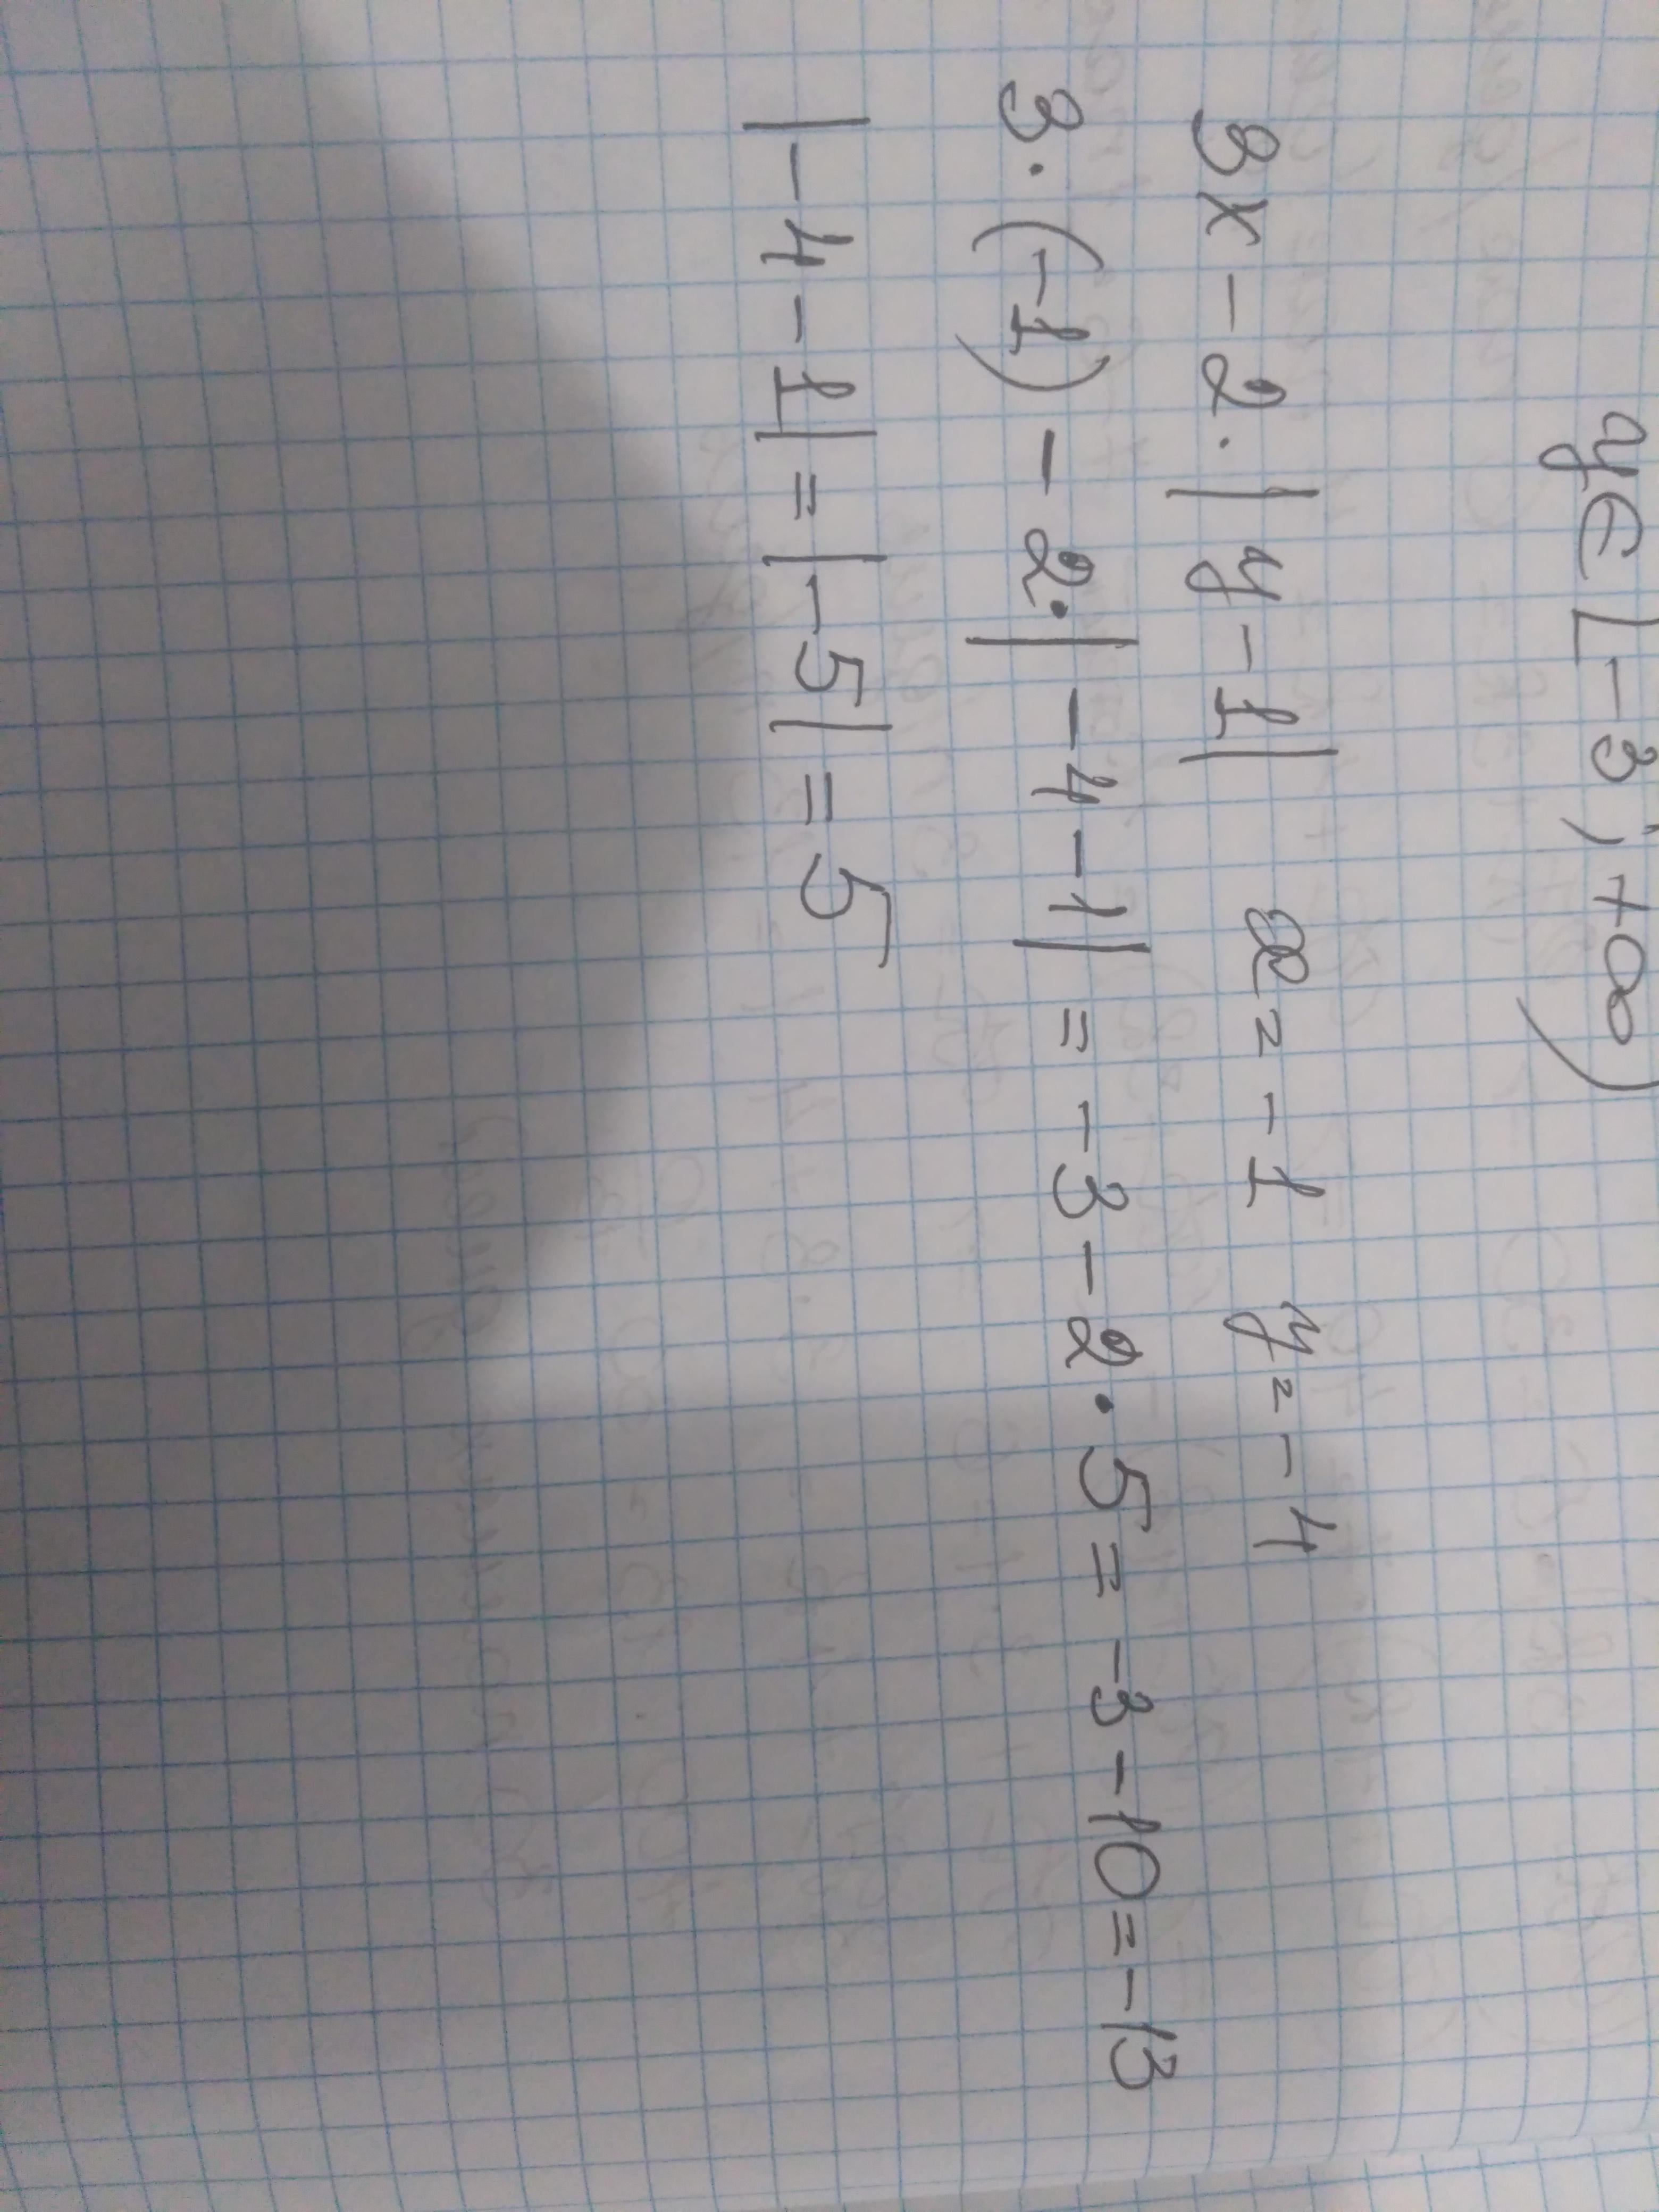 y∈[-3; +∞)
3x - 2·|y-1| x=-1 y=-4
3·(-1) - 2·|-4-1| = -3-2·5 = -3-10 = -13
|-4-1| = |-5| = 5